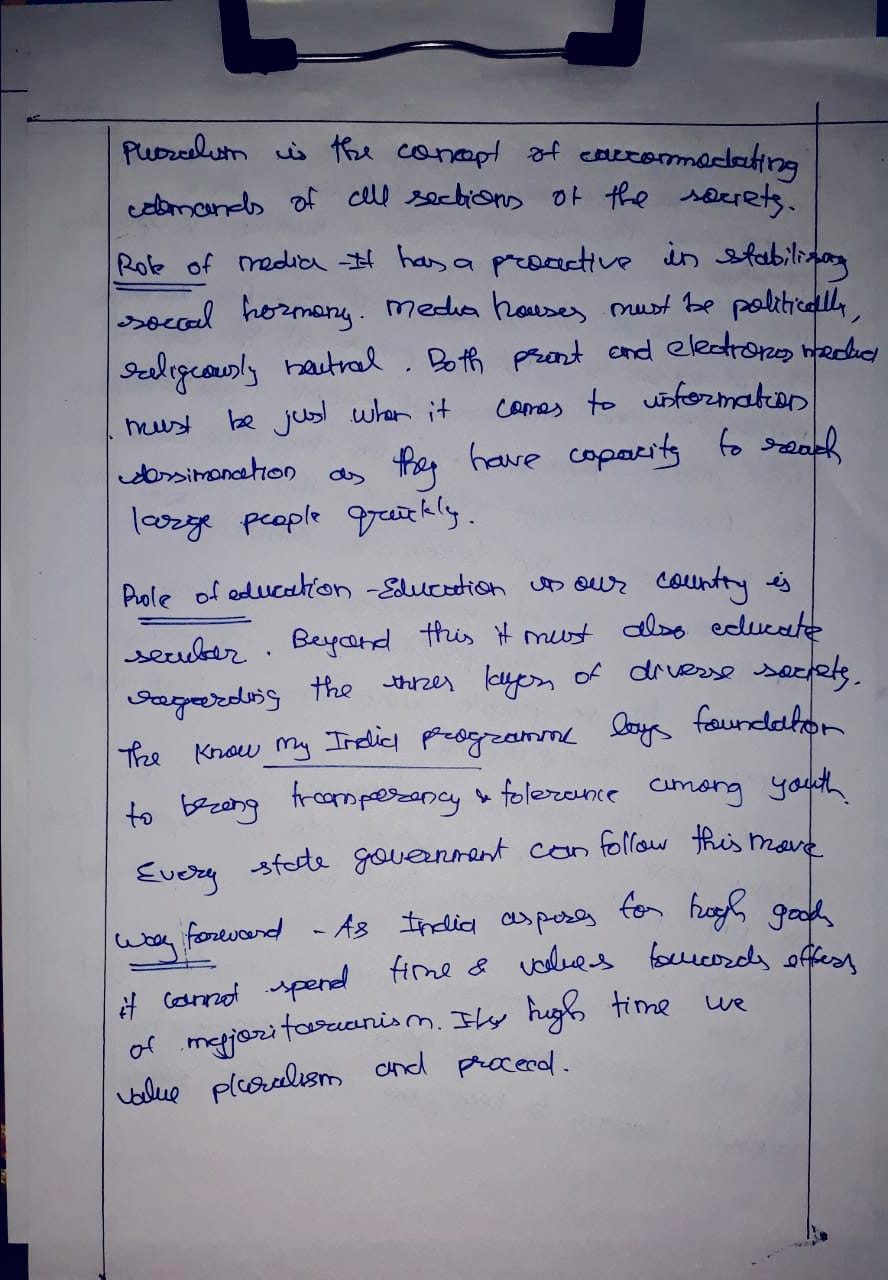 Pluralism is the concept of accommodating
demands of all sections of the society.
Role of media - It has a proactive in stabilising
social harmony. Media houses must be politically,
religiously neutral. Both print and electronic media
must be just when it comes to information
dissimanation as they have capacity to reach
large people quickly.
Role of education - Education in our country is
secular. Beyond this it must also educate
regarding the layers of diverse society.
The Know My India programme lays foundation
to bring transperancy & tolerance among youth.
Every state government can follow this move
Way forward - As India aspires for high goals
it cannot spend time & values towards effects
of majoritarianism. Its high time we
value pluralism and proceed.